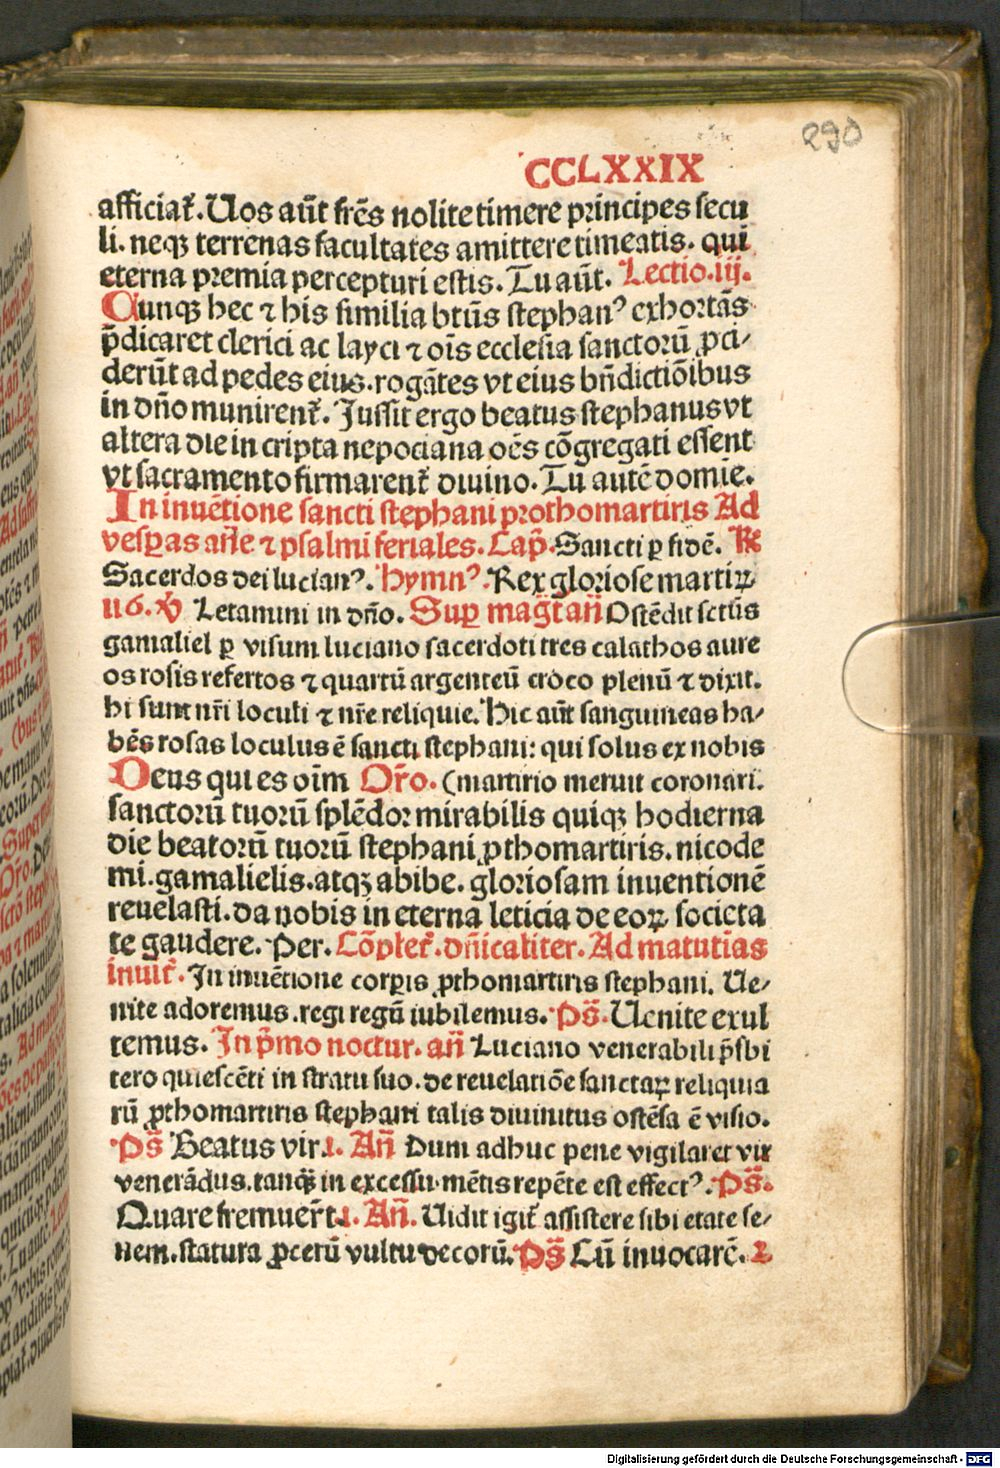 290
CCLXXIX
afficiat᷑. Uos aūt frēs nolite timere principes secu
li. neqꝫ terrenas facultates amittere timeatis. qui
eterna premia percepturi estis. Tu aūt. Lectio .iij.
Cunqꝫ hec ⁊ his similia btūs stephanꝰ exhortās
p̄dicaret clerici ac layci ⁊ oīs ecclesia sanctorū ꝓci/
derūt ad pedes eius. rogātes vt eius bn̄dictiōibus
in dn̄o munirent᷑. Jussit ergo beatus stephanus vt
altera die in cripta nepociana oēs cōgregati essent
vt sacramento firmarent᷑ diuino. Tu autē domīe.
In inuētione sancti stephani prothomartiris Ad
vesꝑas an̄e ⁊ psalmi feriales. Cap̄. Sancti ꝑ fidē. ℟
Sacerdos dei lucianꝰ. Hymnꝰ. Rex gloriose martiꝝ
116. ℣ Letamini in dn̄o. Suꝑ maḡt an̄ Ostēdit sctūs
gamaliel ꝑ visum luciano sacerdoti tres calathos aure
os rosis refertos ⁊ quartū argenteū croco plenū ⁊ dixit.
hi sunt nr̄i loculi ⁊ nr̄e reliquie. Hic aūt sanguineas ha/
bēs rosas loculus ē sancti stephani: qui solus ex nobis
Deus qui es oīm Or̄o. (martirio meruit coronari.
sanctorū tuorū splēdor mirabilis quiqꝫ hodierna
die beatorū tuorū stephani ꝓthomartiris. nicode
mi. gamalielis. atqꝫ abibe. gloriosam inuentionē
reuelasti. da nobis in eterna leticia de eoꝝ societa
te gaudere. Per. Cōplet᷑. dn̄icaliter. Ad matutīas
inuit᷑. In inuētione corꝑis ꝓthomartiris stephani. Ue/
nite adoremus. regi regū iubilemus. Ps̄. Uenite exul
temus. In p̄mo noctur. an̄ Luciano venerabili p̄sbi
tero quiescēti in stratu suo. de reuelatiōe sanctaꝝ reliquia
rū ꝓthomartiris stephani talis diuinitus ostēsa ē visio.
Ps̄ Beatus vir. 1. An̄ Dum adhuc pene vigilaret vir
venerādus. tanqꝫ in excessu mētis repēte est effectꝰ. Ps̄.
Quare fremuer̄t. 1. An̄. Uidit igit᷑ assistere sibi etate se/
nem. statura ꝓcerū vultu decorū. Ps̄ Cū inuocarē. 2
Digitalisierung gefördert durch die Deutsche Forschungsgemeinschaft - DFG